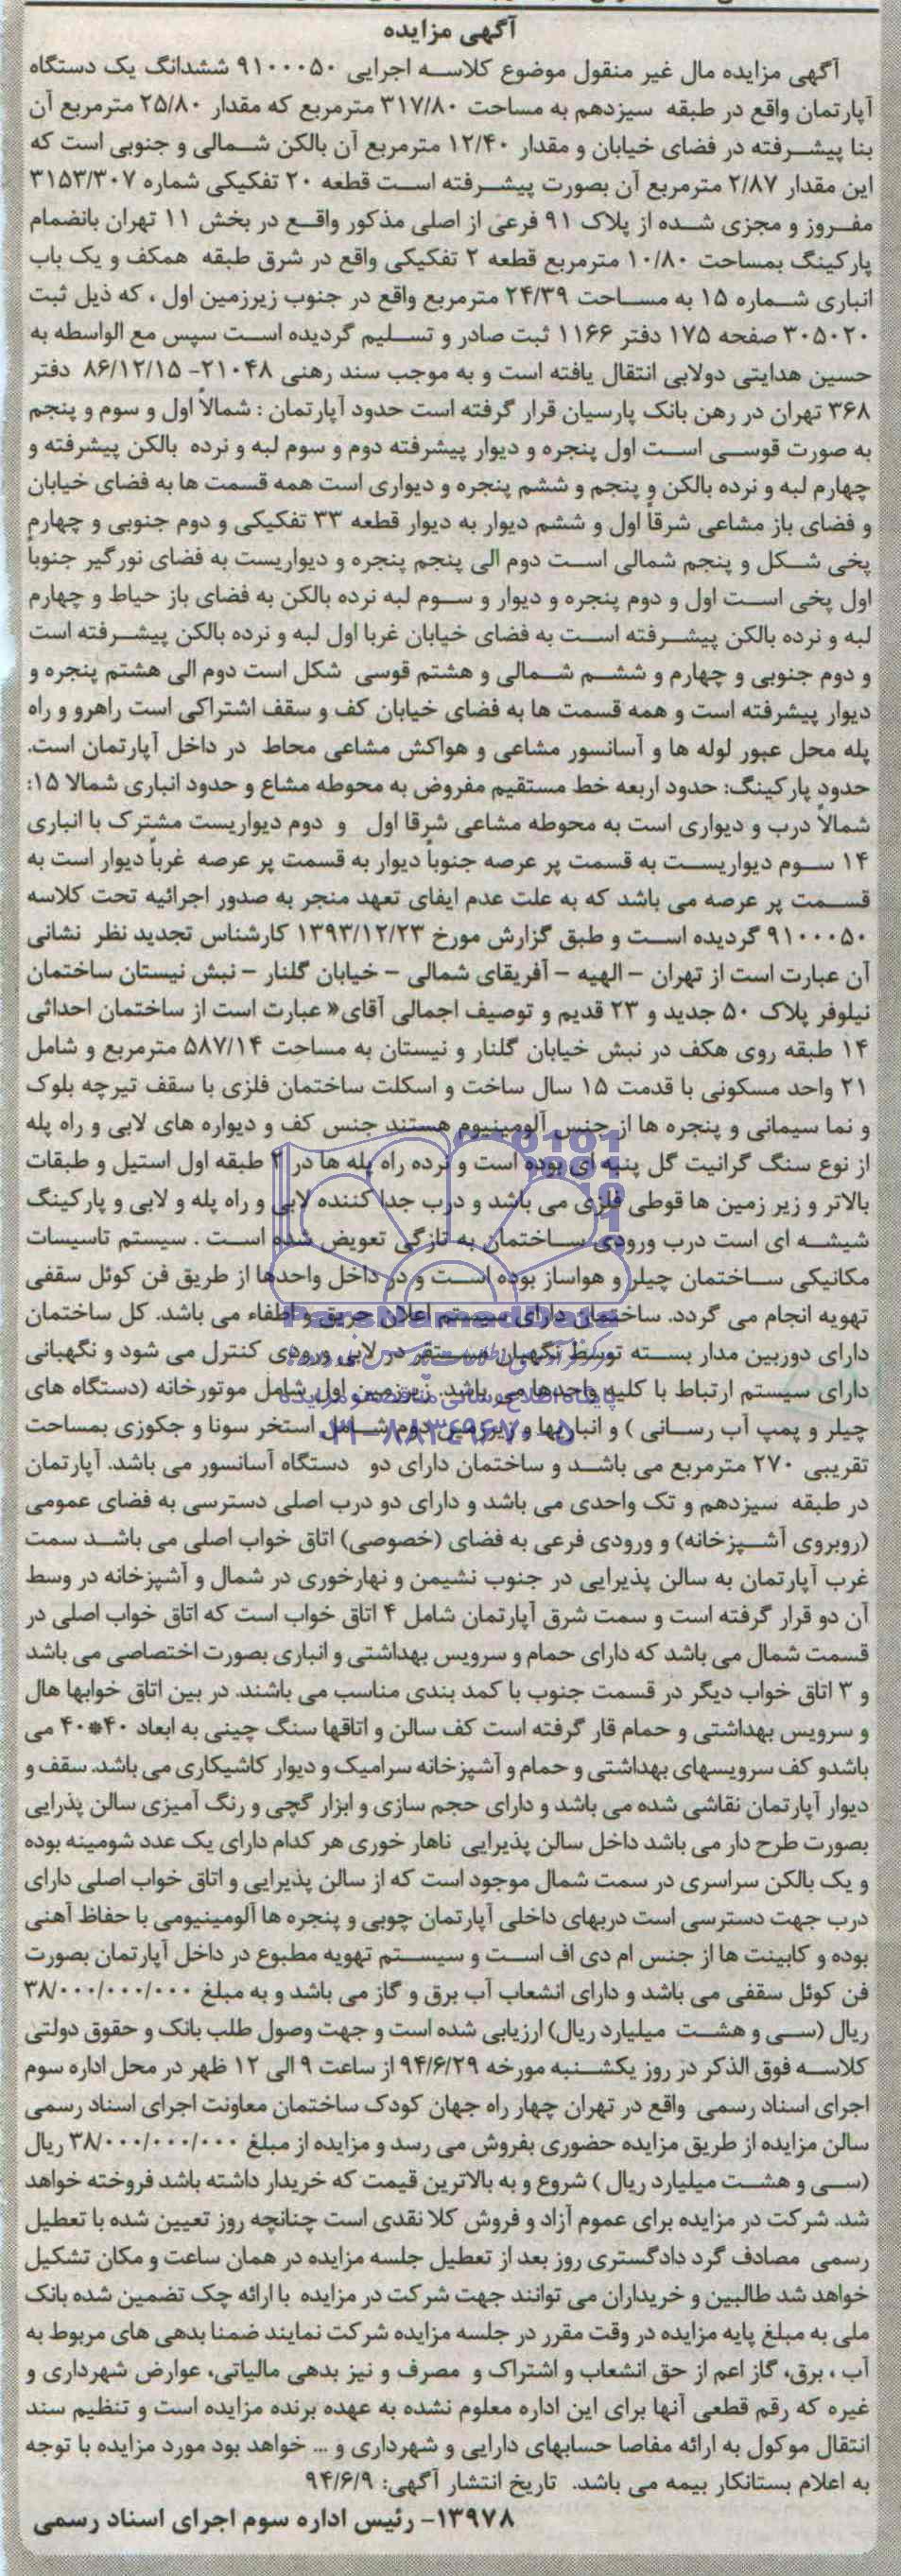 آگهی مزایده
آگهی مزایده مال غیر منقول موضوع کلاسه اجرایی ۹۱۰۰۰۵۰ ششدانگ یک دستگاه
آپارتمان واقع در طبقه سیزدهم به مساحت ۳۱۷/۸۰ مترمربع که مقدار ۲۵/۸۰ مترمربع آن
بنا پیشرفته در فضای خیابان و مقدار ۱۲/۴۰ مترمربع آن بالکن شمالی و جنوبی است که
این مقدار ۲/۸۷ مترمربع آن بصورت پیشرفته است قطعه ۲۰ تفکیکی شماره ۳۱۵۳/۳۰۷
مفروز و مجزی شده از پلاک ۹۱ فرعی از اصلی مذکور واقع در بخش ۱۱ تهران بانضمام
پارکینگ بمساحت ۱۰/۸۰ مترمربع قطعه ۲ تفکیکی واقع در شرق طبقه همکف و یک باب
انباری شماره ۱۵ به مساحت ۲۴/۳۹ مترمربع واقع در جنوب زیرزمین اول ، که ذیل ثبت
۳۰۵۰۲۰ صفحه ۱۷۵ دفتر ۱۱۶۶ ثبت صادر و تسلیم گردیده است سپس مع الواسطه به
حسین هدایتی دولابی انتقال یافته است و به موجب سند رهنی ۲۱۰۴۸- ۸۶/۱۲/۱۵ دفتر
۳۶۸ تهران در رهن بانک پارسیان قرار گرفته است حدود آپارتمان : شمالاً اول و سوم و پنجم
به صورت قوسی است اول پنجره و دیوار پیشرفته دوم و سوم لبه و نرده بالکن پیشرفته و
چهارم لبه و نرده بالکن و پنجم و ششم پنجره و دیواری است همه قسمت ها به فضای خیابان
و فضای باز مشاعی شرقاً اول و ششم دیوار به دیوار قطعه ۳۳ تفکیکی و دوم جنوبی و چهارم
پخی شکل و پنجم شمالی است دوم الی پنجم پنجره و دیواریست به فضای نورگیر جنوباً
اول پخی است اول و دوم پنجره و دیوار و سوم لبه نرده بالکن به فضای باز حیاط و چهارم
لبه و نرده بالکن پیشرفته است به فضای خیابان غربا اول لبه و نرده بالکن پیشرفته است
و دوم جنوبی و چهارم و ششم شمالی و هشتم قوسی شکل است دوم الی هشتم پنجره و
دیوار پیشرفته است و همه قسمت ها به فضای خیابان کف و سقف اشتراکی است راهرو و راه
پله محل عبور لوله ها و آسانسور مشاعی و هواکش مشاعی محاط در داخل آپارتمان است.
حدود پارکینگ: حدود اربعه خط مستقیم مفروض به محوطه مشاع و حدود انباری شمالا ۱۵:
شمالاً درب و دیواری است به محوطه مشاعی شرقا اول و دوم دیواریست مشترک با انباری
۱۴ سوم دیواریست به قسمت پر عرصه جنوباً دیوار به قسمت پر عرصه غرباً دیوار است به
قسمت پر عرصه می باشد که به علت عدم ایفای تعهد منجر به صدور اجرائیه تحت کلاسه
۹۱۰۰۰۵۰ گردیده است و طبق گزارش مورخ ۱۳۹۳/۱۲/۲۳ کارشناس تجدید نظر نشانی
آن عبارت است از تهران – الهیه – آفریقای شمالی – خیابان گلنار – نبش نیستان ساختمان
نیلوفر پلاک ۵۰ جدید و ۲۳ قدیم و توصیف اجمالی آقای« عبارت است از ساختمان احداثی
۱۴ طبقه روی هکف در نبش خیابان گلنار و نیستان به مساحت ۵۸۷/۱۴ مترمربع و شامل
۲۱ واحد مسکونی با قدمت ۱۵ سال ساخت و اسکلت ساختمان فلزی با سقف تیرچه بلوک
و نما سیمانی و پنجره ها از جنس آلومینیوم هستند جنس کف و دیواره های لابی و راه پله
از نوع سنگ گرانیت گل پنبه ای بوده است و نرده راه پله ها در ۲ طبقه اول استیل و طبقات
بالاتر و زیر زمین ها قوطی فلزی می باشد و درب جدا کننده لابی و راه پله و لابی و پارکینگ
شیشه ای است درب ورودی ساختمان به تازگی تعویض شده است . سیستم تاسیسات
مکانیکی ساختمان چیلر و هواساز بوده است و در داخل واحدها از طریق فن کوئل سقفی
تهویه انجام می گردد. ساختمان دارای سیستم اعلان حریق و اطفاء می باشد. کل ساختمان
دارای دوربین مدار بسته توسط نگهبان مستقر در لابی ورودی کنترل می شود و نگهبانی
دارای سیستم ارتباط با کلیه واحدها می باشد. زیرزمین اول شامل موتورخانه (دستگاه های
چیلر و پمپ آب رسانی ) و انباریها و زیرزمین دوم شامل استخر سونا و جکوزی بمساحت
تقریبی ۲۷۰ مترمربع می باشد و ساختمان دارای دو دستگاه آسانسور می باشد. آپارتمان
در طبقه سیزدهم و تک واحدی می باشد و دارای دو درب اصلی دسترسی به فضای عمومی
(روبروی آشپزخانه) و ورودی فرعی به فضای (خصوصی) اتاق خواب اصلی می باشد سمت
غرب آپارتمان به سالن پذیرایی در جنوب نشیمن و نهارخوری در شمال و آشپزخانه در وسط
آن دو قرار گرفته است و سمت شرق آپارتمان شامل ۴ اتاق خواب است که اتاق خواب اصلی در
قسمت شمال می باشد که دارای حمام و سرویس بهداشتی و انباری بصورت اختصاصی می باشد
و ۳ اتاق خواب دیگر در قسمت جنوب با کمد بندی مناسب می باشند. در بین اتاق خوابها هال
و سرویس بهداشتی و حمام قار گرفته است کف سالن و اتاقها سنگ چینی به ابعاد ۴۰*۴۰ می
باشدو کف سرویسهای بهداشتی و حمام و آشپزخانه سرامیک و دیوار کاشیکاری می باشد. سقف و
دیوار آپارتمان نقاشی شده می باشد و دارای حجم سازی و ابزار گچی و رنگ آمیزی سالن پذرایی
بصورت طرح دار می باشد داخل سالن پذیرایی ناهار خوری هر کدام دارای یک عدد شومینه بوده
و یک بالکن سراسری در سمت شمال موجود است که از سالن پذیرایی و اتاق خواب اصلی دارای
درب جهت دسترسی است دربهای داخلی آپارتمان چوبی و پنجره ها آلومینیومی با حفاظ آهنی
بوده و کابینت ها از جنس ام دی اف است و سیستم تهویه مطبوع در داخل آپارتمان بصورت
فن کوئل سقفی می باشد و دارای انشعاب آب برق و گاز می باشد و به مبلغ ۳۸/۰۰۰/۰۰۰/۰۰۰
ریال (سی و هشت میلیارد ریال) ارزیابی شده است و جهت وصول طلب بانک و حقوق دولتی
کلاسه فوق الذکر در روز یکشنبه مورخه ۹۴/۶/۲۹ از ساعت ۹ الی ۱۲ ظهر در محل اداره سوم
اجرای اسناد رسمی واقع در تهران چهار راه جهان کودک ساختمان معاونت اجرای اسناد رسمی
سالن مزایده از طریق مزایده حضوری بفروش می رسد و مزایده از مبلغ ۳۸/۰۰۰/۰۰۰/۰۰۰ ریال
(سی و هشت میلیارد ریال ) شروع و به بالاترین قیمت که خریدار داشته باشد فروخته خواهد
شد. شرکت در مزایده برای عموم آزاد و فروش کلا نقدی است چنانچه روز تعیین شده با تعطیل
رسمی مصادف گرد دادگستری روز بعد از تعطیل جلسه مزایده در همان ساعت و مکان تشکیل
خواهد شد طالبین و خریداران می توانند جهت شرکت در مزایده با ارائه چک تضمین شده بانک
ملی به مبلغ پایه مزایده در وقت مقرر در جلسه مزایده شرکت نمایند ضمنا بدهی های مربوط به
آب ، برق، گاز اعم از حق انشعاب و اشتراک و مصرف و نیز بدهی مالیاتی، عوارض شهرداری و
غیره که رقم قطعی آنها برای این اداره معلوم نشده به عهده برنده مزایده است و تنظیم سند
انتقال موکول به ارائه مفاصا حسابهای دارایی و شهرداری و ... خواهد بود مورد مزایده با توجه
به اعلام بستانکار بیمه می باشد. تاریخ انتشار آگهی: ۹۴/۶/۹
۱۳۹۷۸- رئیس اداره سوم اجرای اسناد رسمی
ParsNamadData
پایگاه اطلاع رسانی مناقصه و مزایده
۰۲۱-۸۸۳۴۹۶۷۰-۵